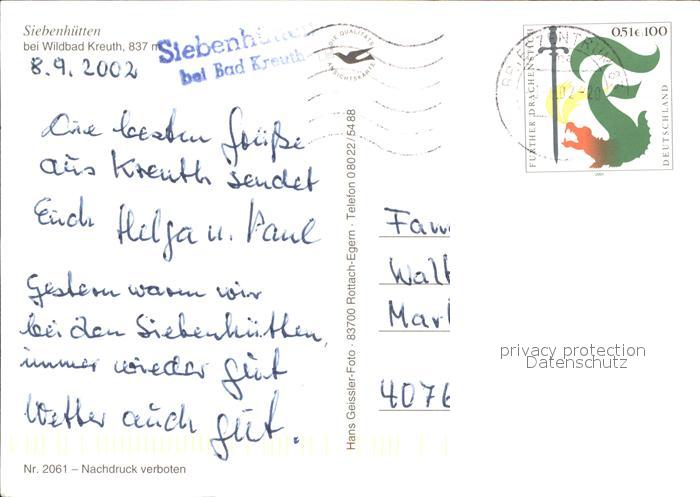 Siebenhütten
bei Wildbad Kreuth, 837 m
8.9.2002
Siebenhütten
bei Bad Kreuth
DIE QUALITÄTS
ANSICHTSKARTE
BRIEFZENTRUM
FURTHER DRACHENSTICH
0,51€ 100
DEUTSCHLAND
2001
Die besten Grüße
aus Kreuth sendet
Euch Helga u. Paul
Gestern waren wir
bei den Siebenhütten,
immer wieder gut
Wetter auch gut.
Hans Geissler-Foto · 83700 Rottach-Egern · Telefon 08022/5488
Fam
Walt
Mark
4076
privacy protection
Datenschutz
Nr. 2061 – Nachdruck verboten